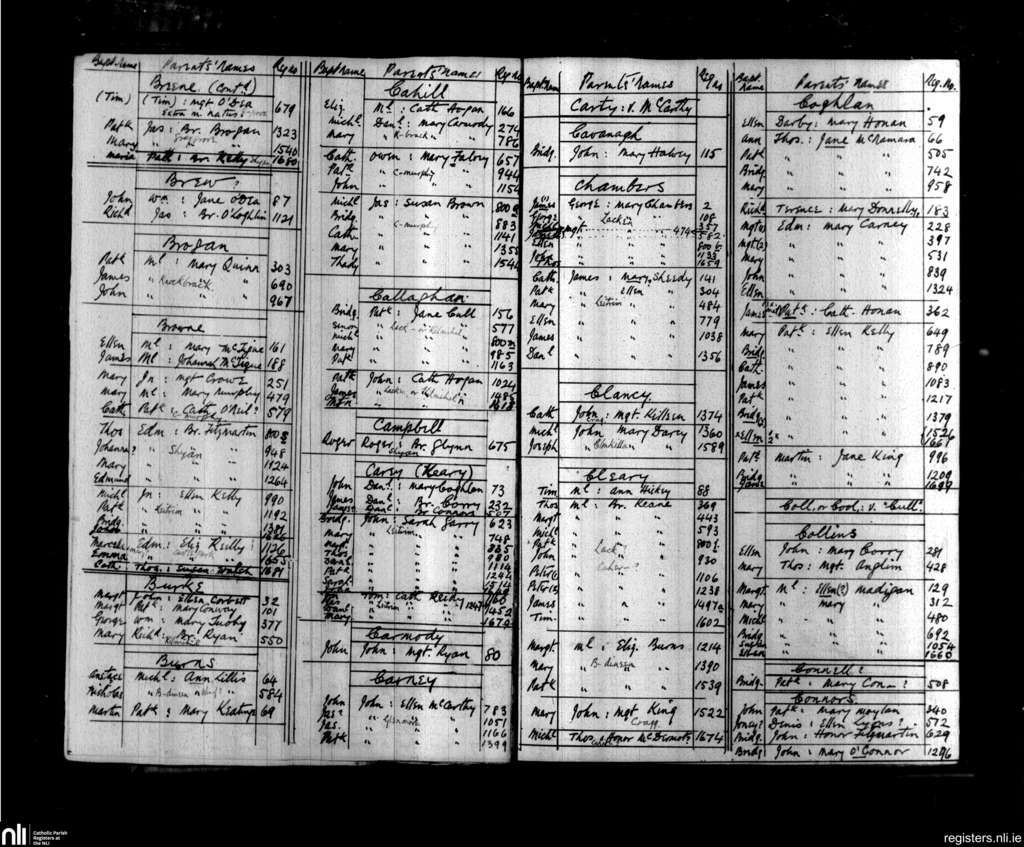 Bapt. name Parents' names Reg no
Breene (Contd)
(Tim) (Tim): Mgt O'Dea 679
Patk Jas: Br. Brogan 1323
Mary " " 1540
Maria Patk: Br. Reidy 1680
Brew?
John Wm: Jane O'Dea 87
Richd Jas: Br. O'Loghlin 1121
Brogan
Patk Ml: Mary Quinn 303
James " Knockbrack " 690
John " " 967
Browne
Ellen Ml: Mary McTigue 161
James Ml: Johanna McTigue 188
Mary Jn: Mgt Crowe 251
Mary Ml: Mary Murphy 479
Cath Patk: Cath O'Neil? 579
Thos Edm: Br. Fitzmartin 800
Johanna? " Shyan " 948
Mary " " 1124
Edmund " " 1264
Michl Jn: Ellen Kelly 990
Patk " Leitrim " 1192
Bridg. " " 1304
Edm: Eliz Reilly 1126
Emma
Cath Thos: Susan Walsh 1681
Burke
Margt John: Ellen Corbett 32
Margt Patk: Mary Conway 101
George Wm: Mary Tuohy 377
Mary Richd: Br. Ryan 550
Burns
Anstace Michl: Ann Lillis 64
Nicholas " 584
Martin Patk: Mary Keating 69
Bapt name Parents' names Reg no
Cahill
Eliz. Ml: Cath Hogan 166
Michl Danl: Mary Carmody 274
Mary " " 786
Cath. Owen: Mary Falvey 657
Patk " C-murphy " 944
John " " 1154
Michl Jas: Susan Brown 800
Bridg. " " 883
Cath " C-murphy " 1141
Mary " " 1358
Thady " " 1541
Callaghan
Bridg. Patk: Jane Cull 156
Senor " " 577
Michl " " 800
Mary " " 985
Patk " " 1163
Patk John: Cath Hogan 1024
James " " 1485
Campbill
Roger Roger: Br. Glynn 675
Shyan
Carey (Keary)
John Danl: Mary Coghlan 73
James Danl: Br. Corry 232
James Danl: Br. Connors 507
Bridg. John: Sarah Garry 623
Mary " Leitrim " 748
Margt " " 835
Thos " " 980
Danl " " 1114
Patk " " 1244
Sarah " " 1514
Jas Tom: Cath Reidy 1160
Danl " Leitrim " 1452
Mary " " 1672
Carmody
John John: Mgt. Ryan 80
Carney
John John: Ellen McCarthy 783
Jas? " Glenmore " 1051
Jas. " " 1166
Patk " " 1399
Bapt name Parents' names Reg no
Carty: v. McCarthy
Cavanagh
Bridg. John: Mary Halvey 115
Chambers
James George: Mary Chambers 2
George " Lack " 108
" " 357
Mgt " " 474
" " 582
Ellen " " 800
John " " 1133
" " 1659
Cath James: Mary Sheedy 141
Patk " Ellen " 304
Mary " Leitrim " 484
Ellen " " 779
James " " 1038
Danl " " 1356
Clancy
Cath John: Mgt. Killeen 1374
Michl John: Mary Darcy 1360
Joseph " Clonkillan " 1589
Cleary
Tim Ml: Ann Hickey 88
Thos Ml: Br. Keane 369
Margt " " 443
Michl " " 593
Patk " Lack " 800
John " " 930
Peter(1) " " 1106
Peter(2) " " 1238
James " " 1497a
Tim " " 1602
Margt. Ml: Eliz. Burns 1214
Mary " B-dineen " 1390
Patk " " 1539
Mary John: Mgt King 1522
Cragg
Michl Thos: Honor McDermott 1674
Bapt. name Parents' names Reg. No.
Coghlan
Ellen Darby: Mary Honan 59
Ann Thos: Jane McNamara 66
Patk " " 505
Bridg. " " 742
Mary " " 958
Richd Terence: Mary Donnelly 183
Mgt(1) Edm: Mary Carney 228
Mgt(2) " " 397
Mary " " 531
John " " 839
Ellen " " 1324
James Patk: Cath. Honan 362
Mary Patk: Ellen Kelly 649
Bridg " " 789
Cath " " 890
James " " 1083
Patk " " 1217
Bridg. " " 1379
Ellen " " 1526
1661
Patk Martin: Jane King 996
Bridg " " 1209
Coll, or Cool: v. "Cull".
Collins
Ellen John: Mary Corry 281
Mary Thos: Mgt. Anglim 428
Margt. Ml: Ellen(?) Madigan 129
Mary " Mary " 312
Michl " " 480
Bridg. " " 692
" " 1054
" " 1660
Connell?
Bridg. Patk: Mary Con—? 508
Connors
John Patk: Mary Moylan 340
Denis: Ellen Lyons? 572
Bridg. John: Honor Fitzmartin 629
Bridg John: Mary O'Connor 1296
nli
Catholic Parish
Registers at
the NLI
registers.nli.ie